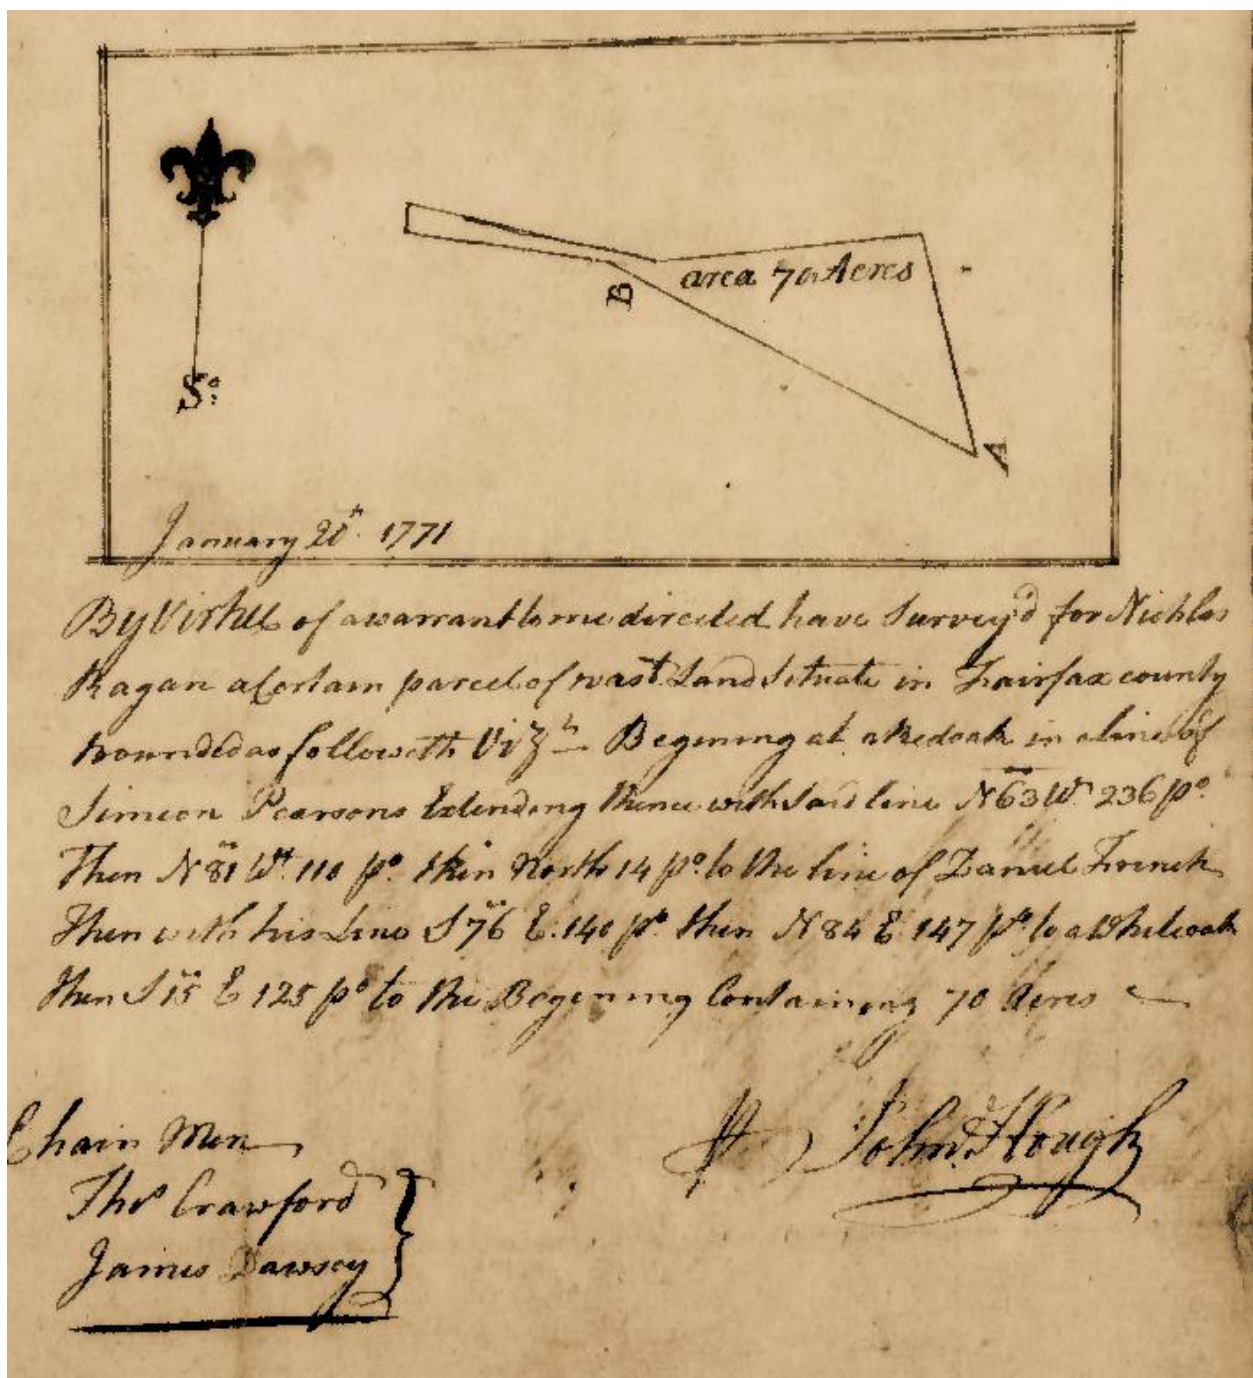 So:
B
area 70 Acres
A
January 20th. 1771
By Virtue of a warrant to me directed have Survey'd for Nichlos
Ragan a Certain parcel of wast Land Situate in Fairfax county
bounded as followeth Viz Begining at a Redoak in a line of
Simeon Pearsons Extending thence with said line N63 Wt 236 po.
Then N 81 Wt. 110 po. then North 14 po. to the line of Daniel French
Then with his Line S 76 E. 140 po then N 84 E 147 po to a Whiteoak
then S 15 E 125 po to the Begening Containing 70 Acres
Chain Men
Thos Crawford
James Dawsey
John Hough